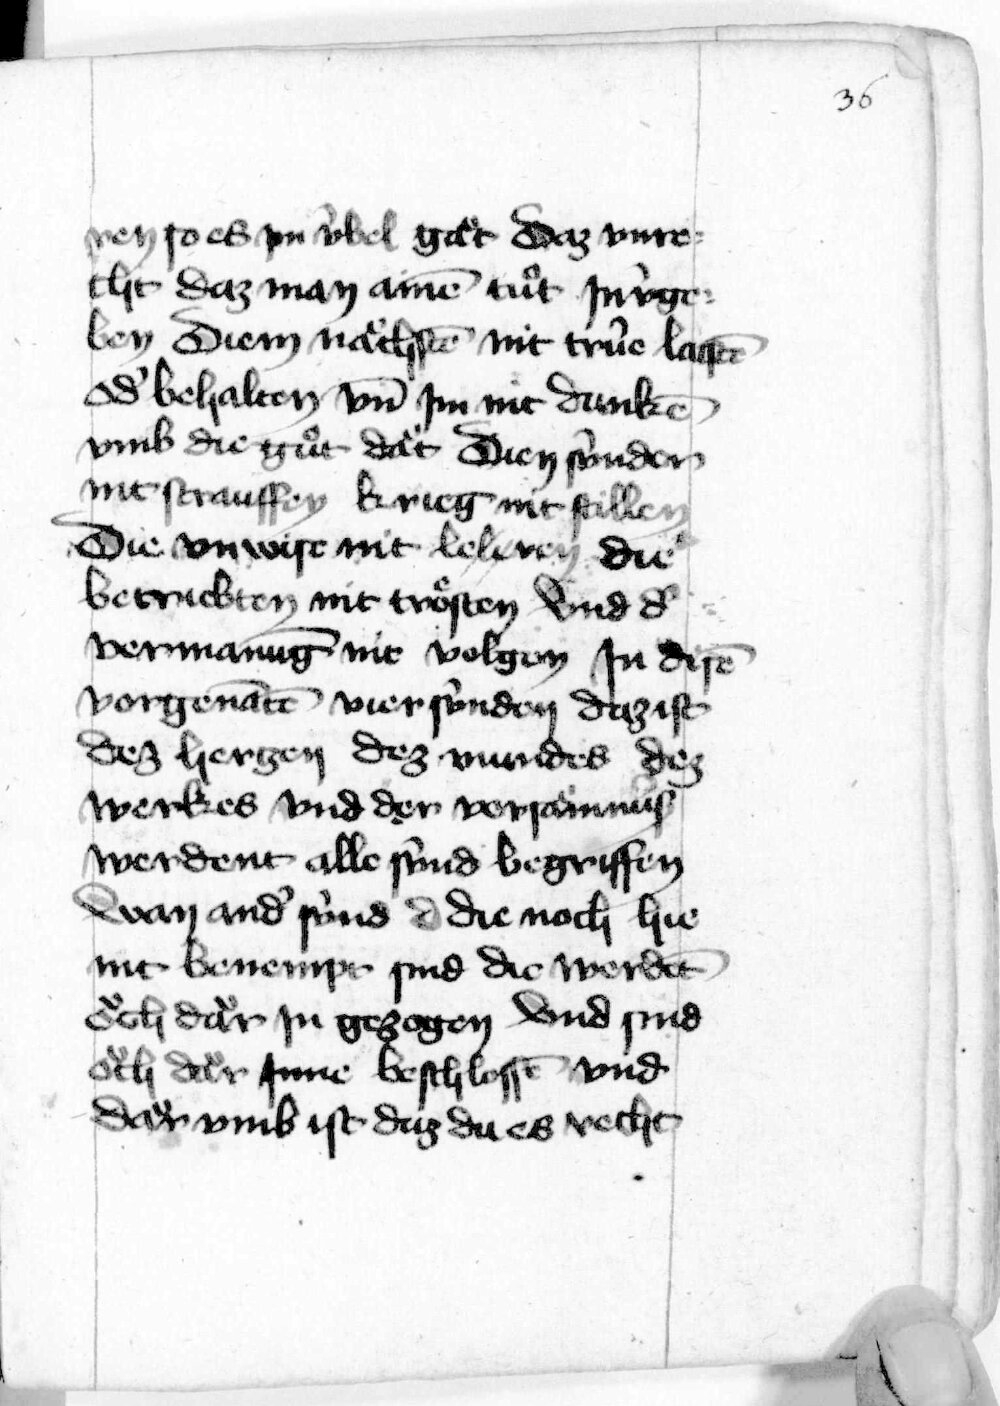 36
ren so es im v̂bel gat Daz vnre-
cht daz man ainē tůt Im v̂ge-
ben Diem nächstē nit trûe laistē
od' behalten Vn̄ Im nit dankē
vmb die gůt dät Dien sv̂nder
nit strauffen krieg nit stillen
Die vnwise nit leleren die
betruebten nit trösten Vnd d'
vermanūg nit volgen In disē
vorgenātē vier sv̂nden daz ist
dez herzen dez mundes dez
werkes vnd der versämnûß
werdent alle sv̂nd begriffen
Wan and' sv̂nd d die noch hie
nit benempt sind die werdēt
och dar In gezogen Vnd sind
och dar Inne beschlossē vnd
Dar vmb ist daz du es recht